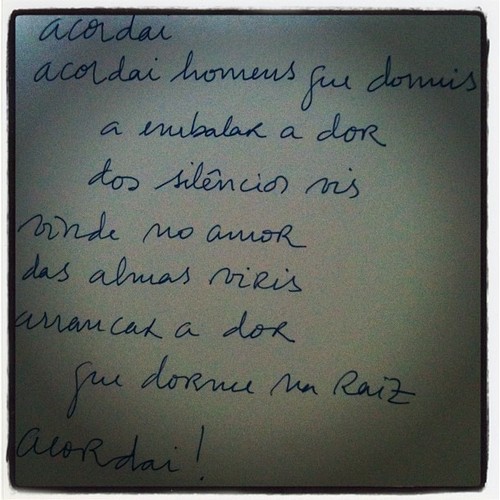 acordai
acordai homens que dormis
a embalar a dor
dos silêncios vis
vinde no amor
das almas viris
arrancar a dor
que dorme na raiz
acordai!